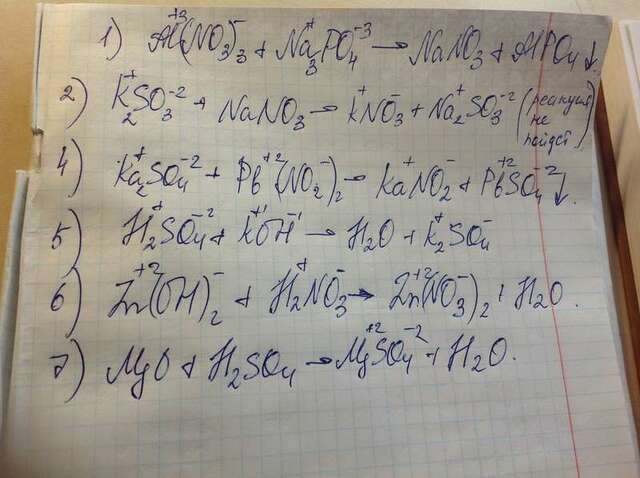 1) Al⁺³(NO₃)⁻₃ + Na⁺₃PO₄⁻³ → NaNO₃ + AlPO₄↓.
2) K⁺₂SO₃⁻² + NaNO₃ → K⁺NO₃⁻ + Na₂⁺SO₃⁻² (реакция не пойдёт)
4) Ka₂⁺SO₄⁻² + Pb⁺²(NO₂)⁻₂ → Ka⁺NO₂⁻ + Pb⁺²SO₄⁻²↓.
5) H₂⁺SO₄⁻² + K⁺¹OH⁻¹ → H₂O + K₂⁺SO₄⁻
6) Zn⁺²(OH)₂⁻ + H₂⁺NO₃⁻ → Zn⁺²(NO₃⁻)₂ + H₂O.
7) MgO + H₂SO₄ → Mg⁺²SO₄⁻² + H₂O.